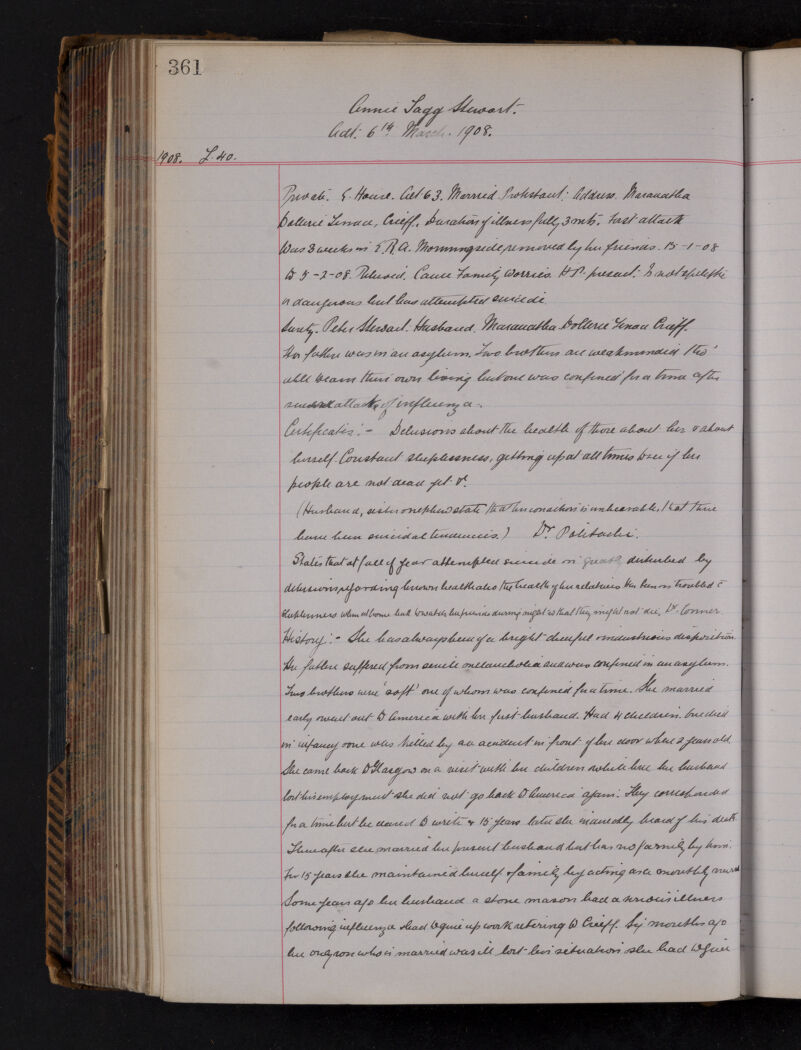 361
Annie Tagg Stewart.
Adt: 6th March. 1908.
1908. L. 40.
Private. E. House. Aet 63. Married. Protestant: Address. Maranatha
Dollerie Terrace, Crieff. Duration of illness fully 3 mts. First attack
Was 3 weeks in E.R.A. Morningside, removed by her friends. 15-1-08
to 5-2-08. Relieved. Cause Family Worries present. Is not epileptic
or dangerous but has attempted suicide
Surety. Peter Stewart. Husband. Maranatha Dollerie Terrace Crieff.
Her father was in an asylum. Two brothers are weakminded tho'
able to earn their own living but one was confined for a time after
attack of influenza.
Certificates:- Delusions about the health of those about her & about
herself. Constant sleeplessness, getting up at all times to see if her
people are not dead yet &c.
(Husband, sister & nephew state that her condition is unbearable, that there
have been suicidal tendencies.) Dr.
States that at fall of year attempted suicide is greatly disturbed by
delusions regarding her own health also the health of her relatives Has been troubled c
sleeplessness when at home had to watch her friends during night so that they might not die. Dr. Connor
History:- She has always been of a bright cheerful & industrious disposition.
Her father suffered from senile melancholia and was confined in an asylum.
Two brothers were 'soft' one of whom was confined for a time. She married
early & went out to America with her first husband. Had 4 children. One died
in infancy & one was killed by an accident in front of her door when 2 years old
She came back to Glasgow on a visit with her children & while here her husband
lost his employment she did not go back to America again. They corresponded
for a time but he ceased to write & 15 years later she indirectly heard of his death
Thereafter she married her present husband but has no family by him.
For 15 years she maintained herself & family by acting as a monthly nurse
Some years ago her husband a stone mason had a serious illness
following influenza & had to give up work retiring to Crieff. Six months ago
her only son who is married was ill lost his situation & she had to give